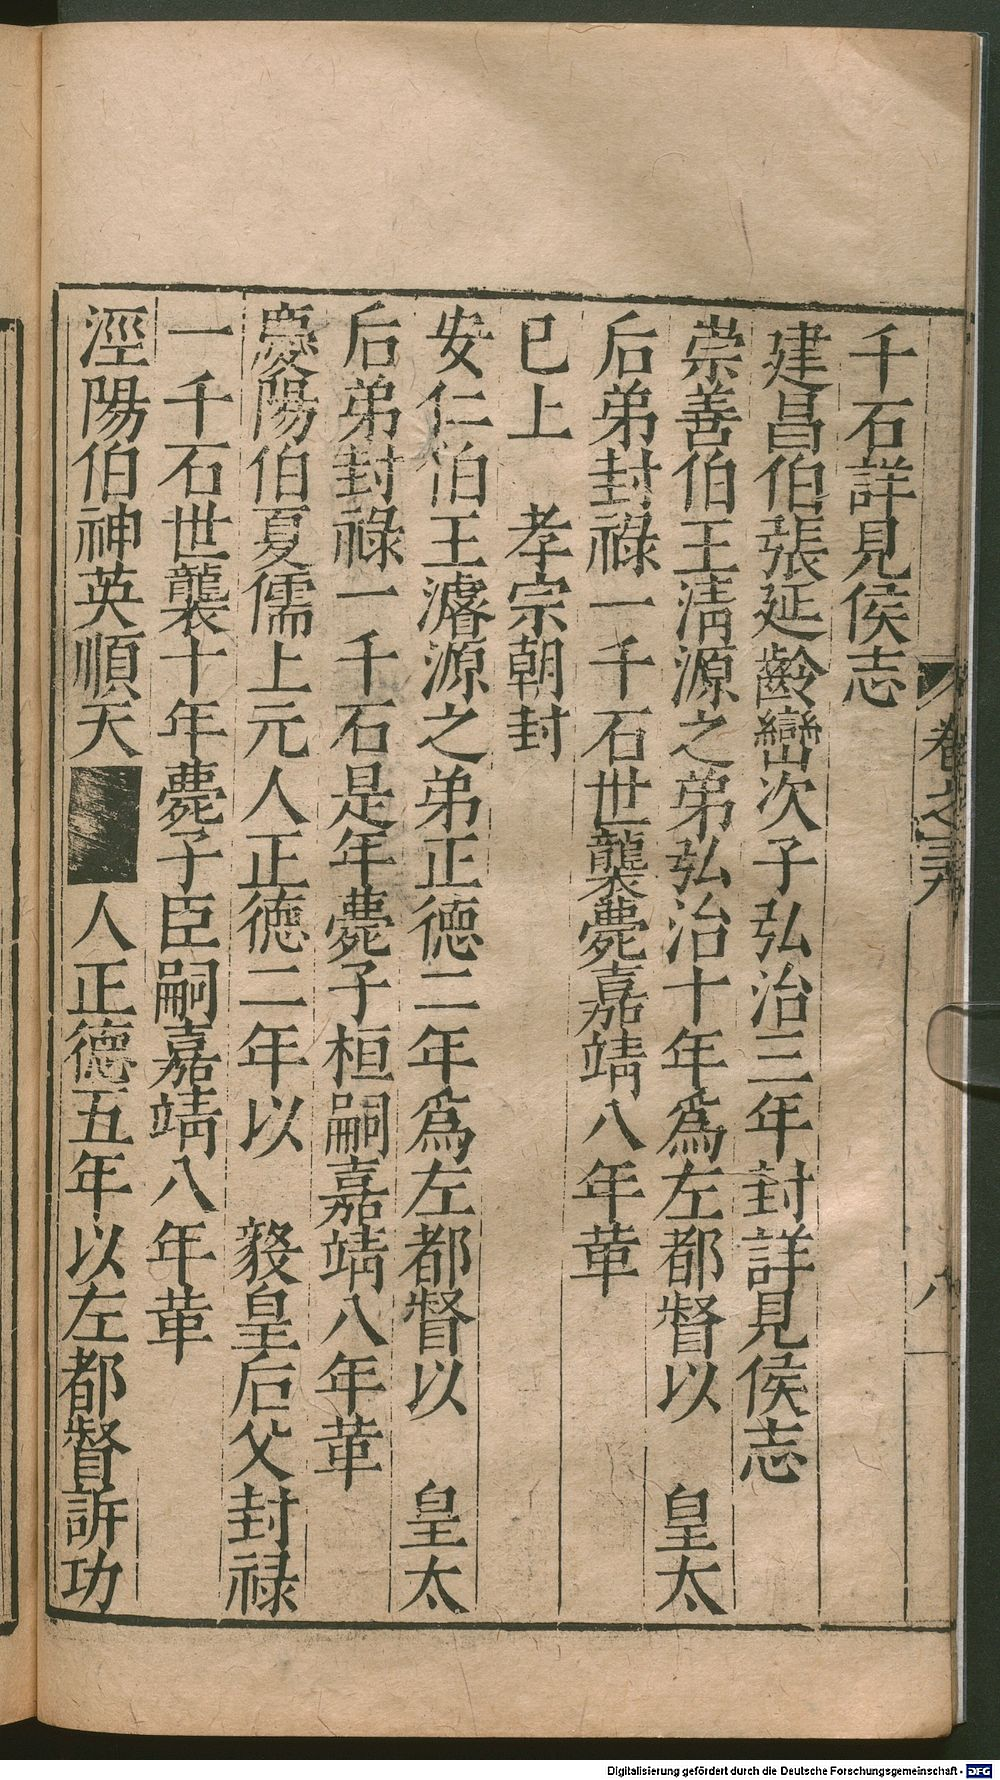 千石詳見侯志
建昌伯張延齡巒次子弘治三年封詳見侯志
崇善伯王清源之弟弘治十年爲左都督以　皇太
后弟封祿一千石世襲薨嘉靖八年革
已上　孝宗朝封
安仁伯王濬源之弟正德二年爲左都督以　皇太
后弟封祿一千石是年薨子桓嗣嘉靖八年革
慶陽伯夏儒上元人正德二年以　毅皇后父封祿
一千石世襲十年薨子臣嗣嘉靖八年革
涇陽伯神英順天　人正德五年以左都督訴功
卷之三
八
Digitalisierung gefördert durch die Deutsche Forschungsgemeinschaft - DFG